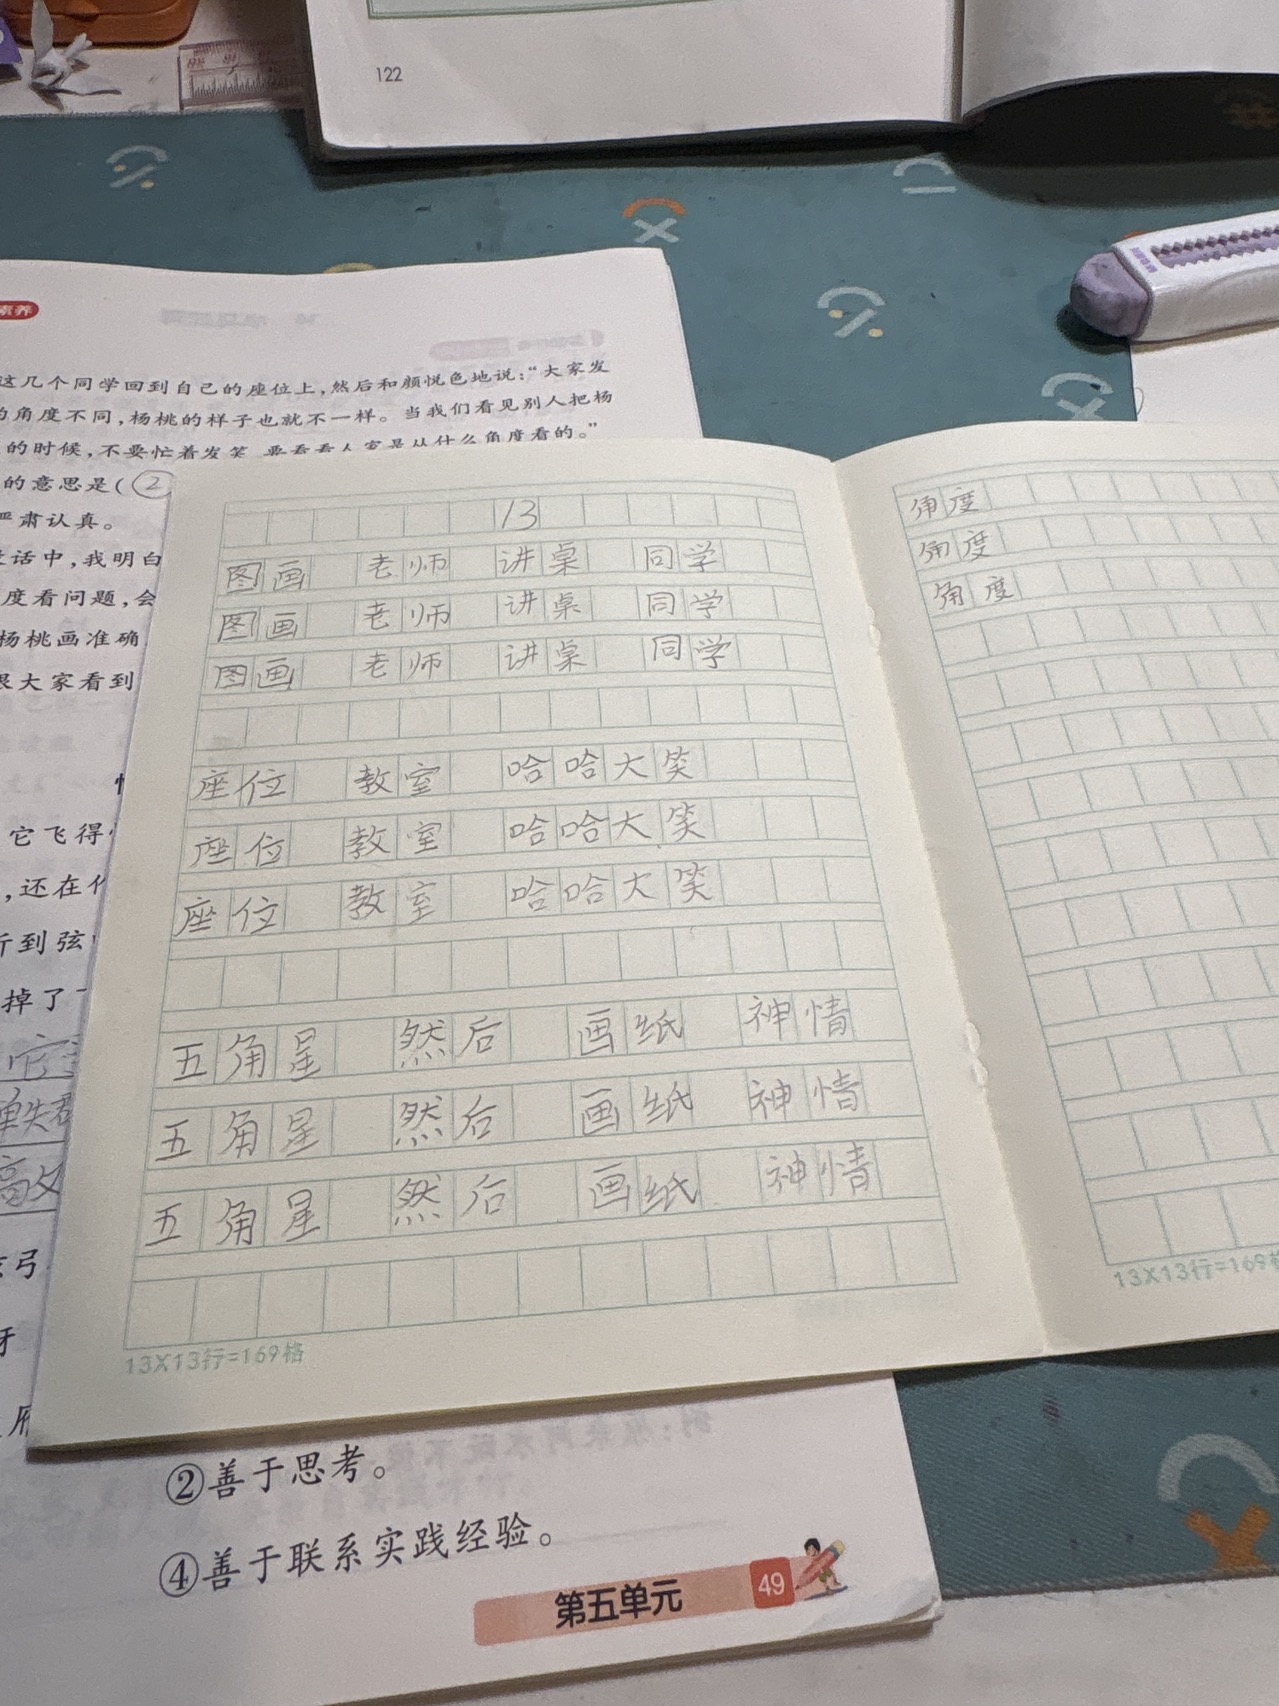 122
素养
这几个同学回到自己的座位上，然后和颜悦色地说：“大家发
的角度不同，杨桃的样子也就不一样。当我们看见别人把杨
的时候，不要忙着发笑，要看看人家是从什么角度看的。”
的意思是（②
严肃认真。
话中，我明白
度看问题，会
杨桃画准确
跟大家看到
它飞得
，还在
听到弦
掉了
它
单失群
高处
弓
13
图画 老师 讲桌 同学
图画 老师 讲桌 同学
图画 老师 讲桌 同学
座位 教室 哈哈大笑
座位 教室 哈哈大笑
座位 教室 哈哈大笑
五角星 然后 画纸 神情
五角星 然后 画纸 神情
五角星 然后 画纸 神情
13X13行=169格
角度
角度
角度
13X13行=169格
②善于思考。
④善于联系实践经验。
第五单元 49